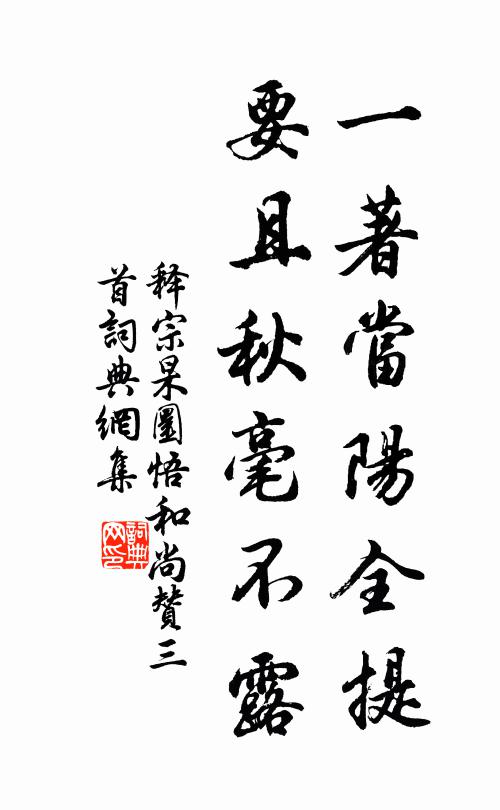 一著當陽全提
要且秋毫不露
释宗杲圜悟和尚赞三
首詞典網集
詞典网印